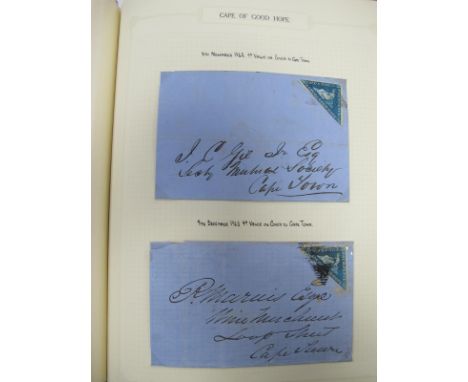 CAPE OF GOOD HOPE
9TH NOVEMBER 1863 4D VALUE ON COVER TO CAPE TOWN.
J. C. Gie Jr Esq
Mutual Society
Cape Town
9TH DECEMBER 1863 4D VALUE ON COVER TO CAPE TOWN.
P. Marais Esqre
Wine Merchant
Loop Street
Cape Town